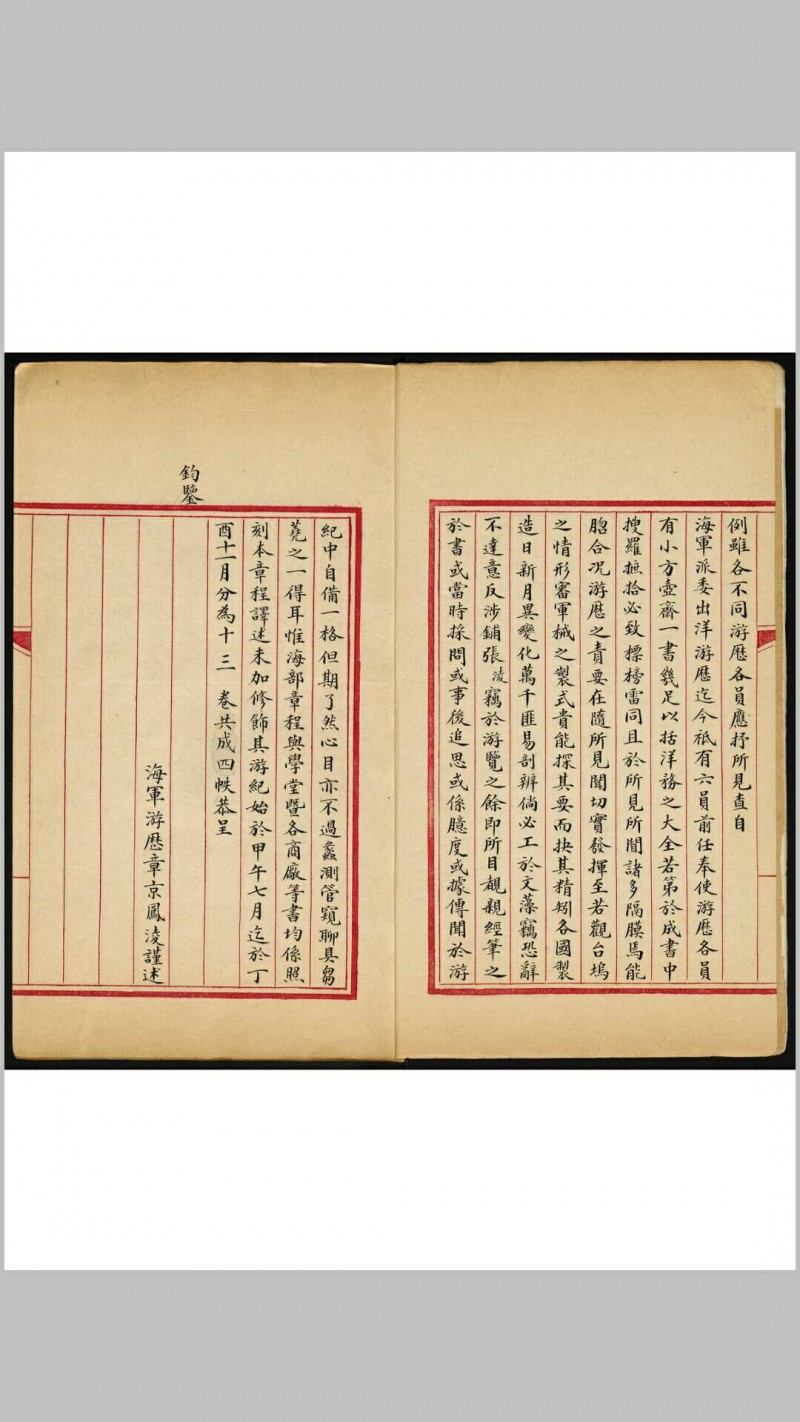 例雖各不同游歷各員應抒所見直自
海軍派委出洋游歷迄今祇有六員前任奉使游歷各員
有小方壺齋一書幾足以括洋務之大全若第於成書中
搜羅摭拾必致標榜雷同且於所見所聞諸多隔膜焉能
脗合况游歷之責要在隨所見聞切實發揮至若觀台塢
之情形審軍械之製式貴能探其要而抉其精矧各國製
造日新月異變化萬千匪易剖辨倘必工於文藻竊恐辭
不達意反涉鋪張凌竊於游覽之餘即所目覩親經筆之
於書或當時採問或事後追思或係臆度或據傳聞於游
紀中自備一格但期了然心目亦不過蠡測管窺聊具芻
蕘之一得耳惟海部章程與學堂暨各商廠等書均係照
刻本章程譯述未加修飾其游紀始於甲午七月迄於丁
酉十一月分為十三卷共成四帙恭呈
鈞鑒
海軍游歷章京鳳凌謹述